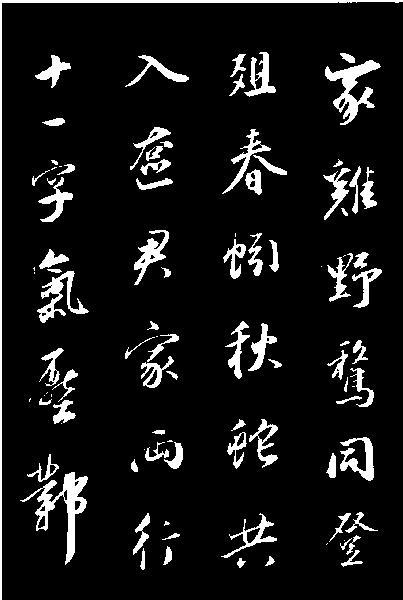 家雞野鶩同登
爼春蚓秋蛇共
入奩君家兩行
十一字氣壓鄴